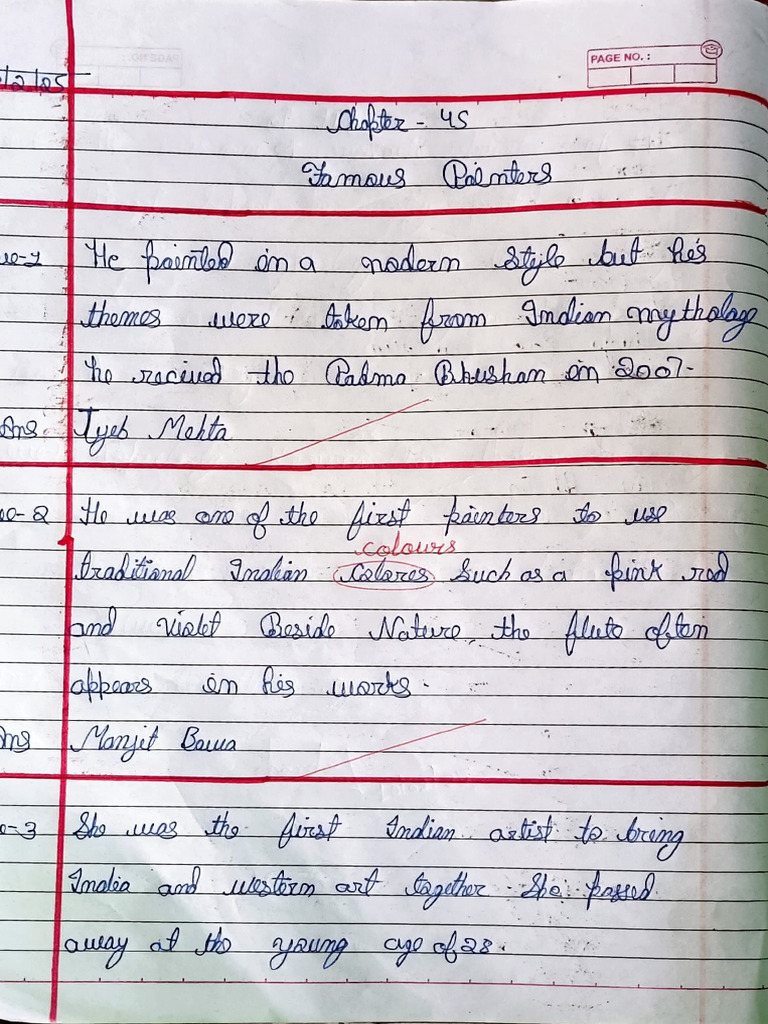 PAGE NO. :
/2/25
Chapter - 45
Famous Painters
ue-1 He painted in a modern style but his
themes were taken from Indian mythology
he recived the Padma Bhushan in 2007.
Ans Tyeb Mehta
ue-2 He was one of the first painters to use
colours
traditional Indian colores such as a pink red
and violet Beside Nature, the flute often
appears in his works.
Ans Manjit Bawa
e-3 She was the first Indian artist to bring
India and western art together. She passed
away at the young age of 28.